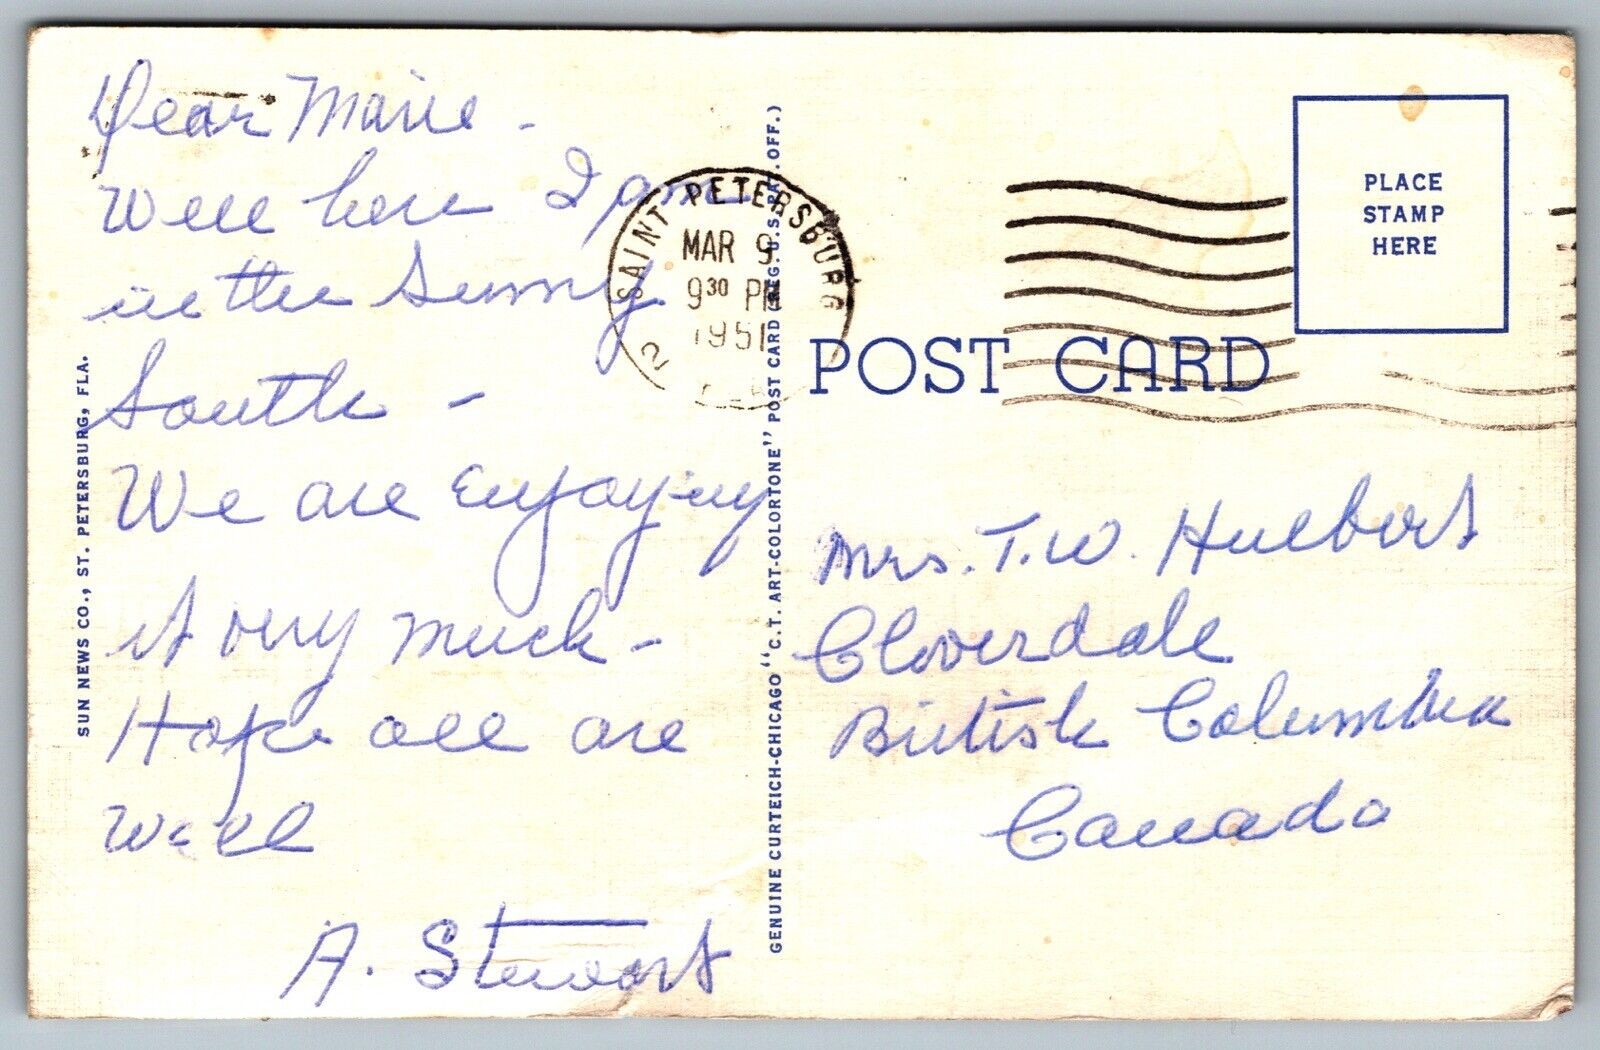 Dear Marie -
Well here I am
in the Sunny
South -
We are Enjoying
it very much -
Hope all are
Well
A. Stewart
SUN NEWS CO., ST. PETERSBURG, FLA.
GENUINE CURTEICH-CHICAGO "C.T. ART-COLORTONE" POST CARD (REG. U.S. PAT. OFF.)
SAINT PETERSBURG
MAR 9
9 30 PM
1951
2
POST CARD
PLACE
STAMP
HERE
Mrs. T.W. Hulbert
Cloverdale
British Columbia
Canada